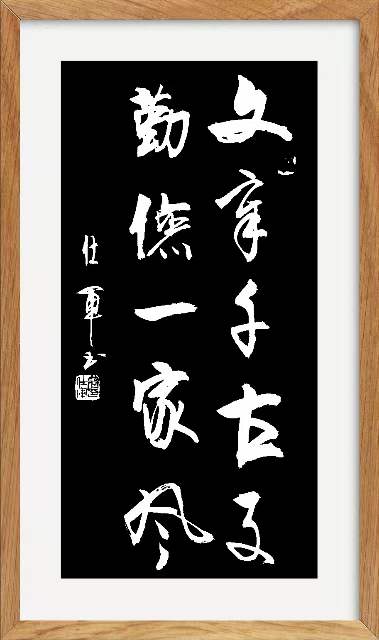 文章千古事
勤儉一家风
仕軍书